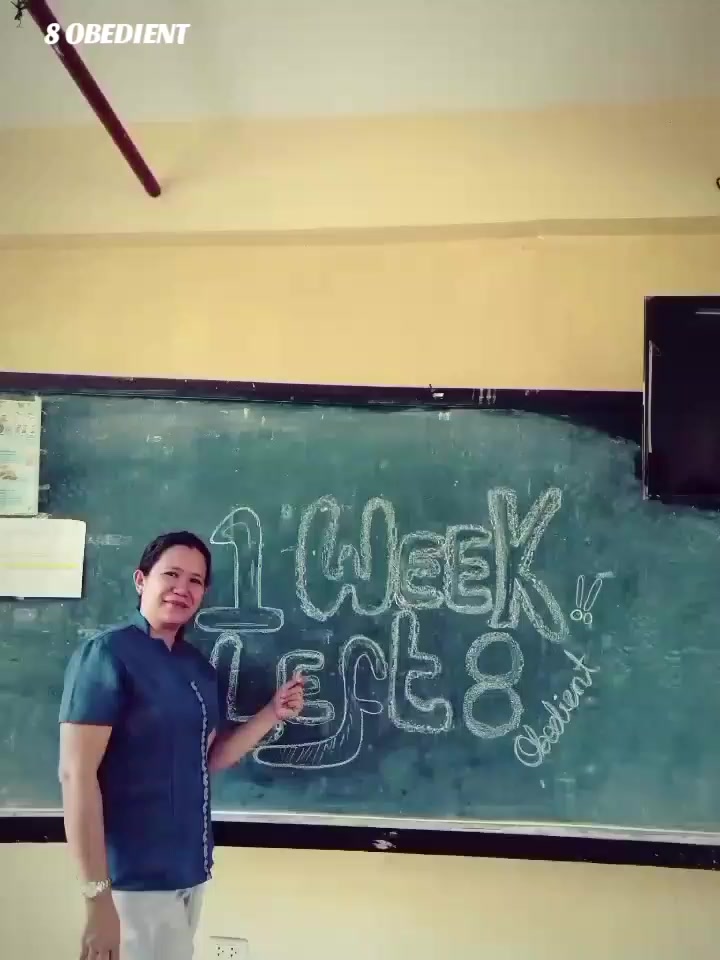 8 OBEDIENT
1 WEEK!!
Left 8
Obedient